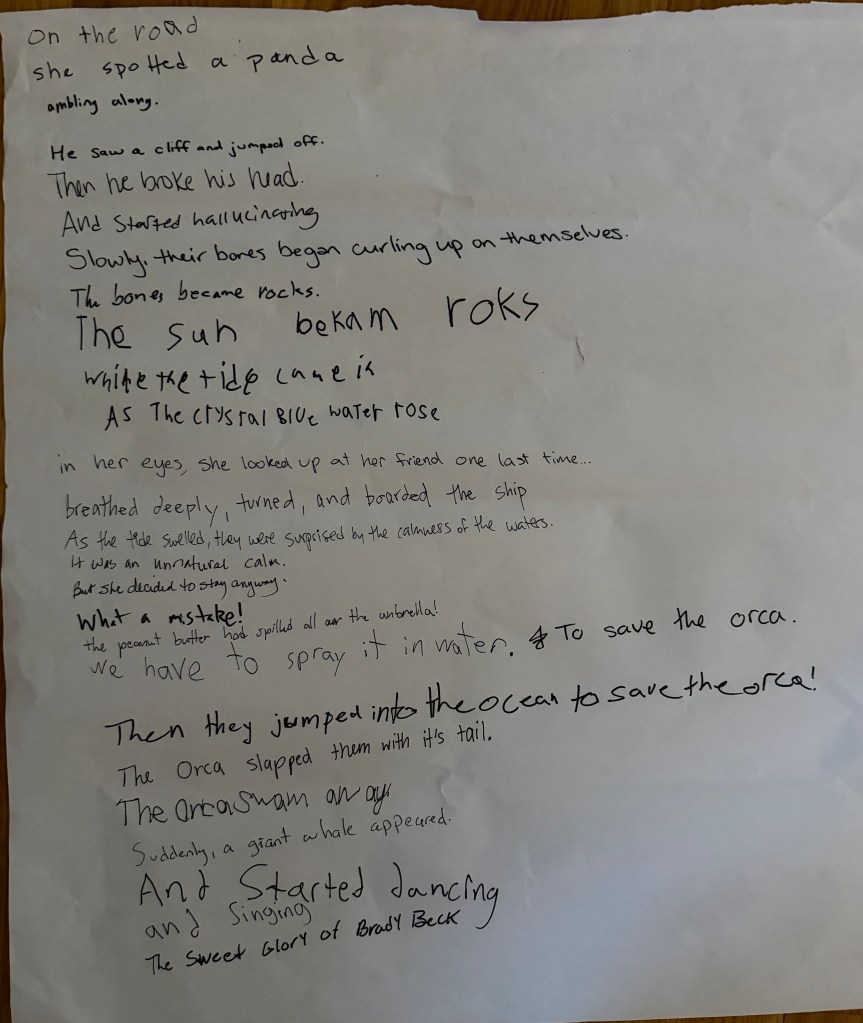 On the road
she spotted a panda
ambling along.
He saw a cliff and jumped off.
Then he broke his head.
And started hallucinating
Slowly, their bones began curling up on themselves.
The bones became rocks.
The sun bekam roks
while the tide came in
As The crystal Blue water rose
in her eyes, she looked up at her friend one last time...
breathed deeply, turned, and boarded the ship
As the tide swelled, they were surprised by the calmness of the waters.
It was an unnatural calm.
But she decided to stay anyway.
What a mistake!
the peanut butter had spilled all over the umbrella!
We have to spray it in water. To save the orca.
Then they jumped into the ocean to save the orca!
The Orca slapped them with it's tail.
The orca swam away
Suddenly, a giant whale appeared.
And Started dancing
and Singing
The Sweet Glory of Brady Beck